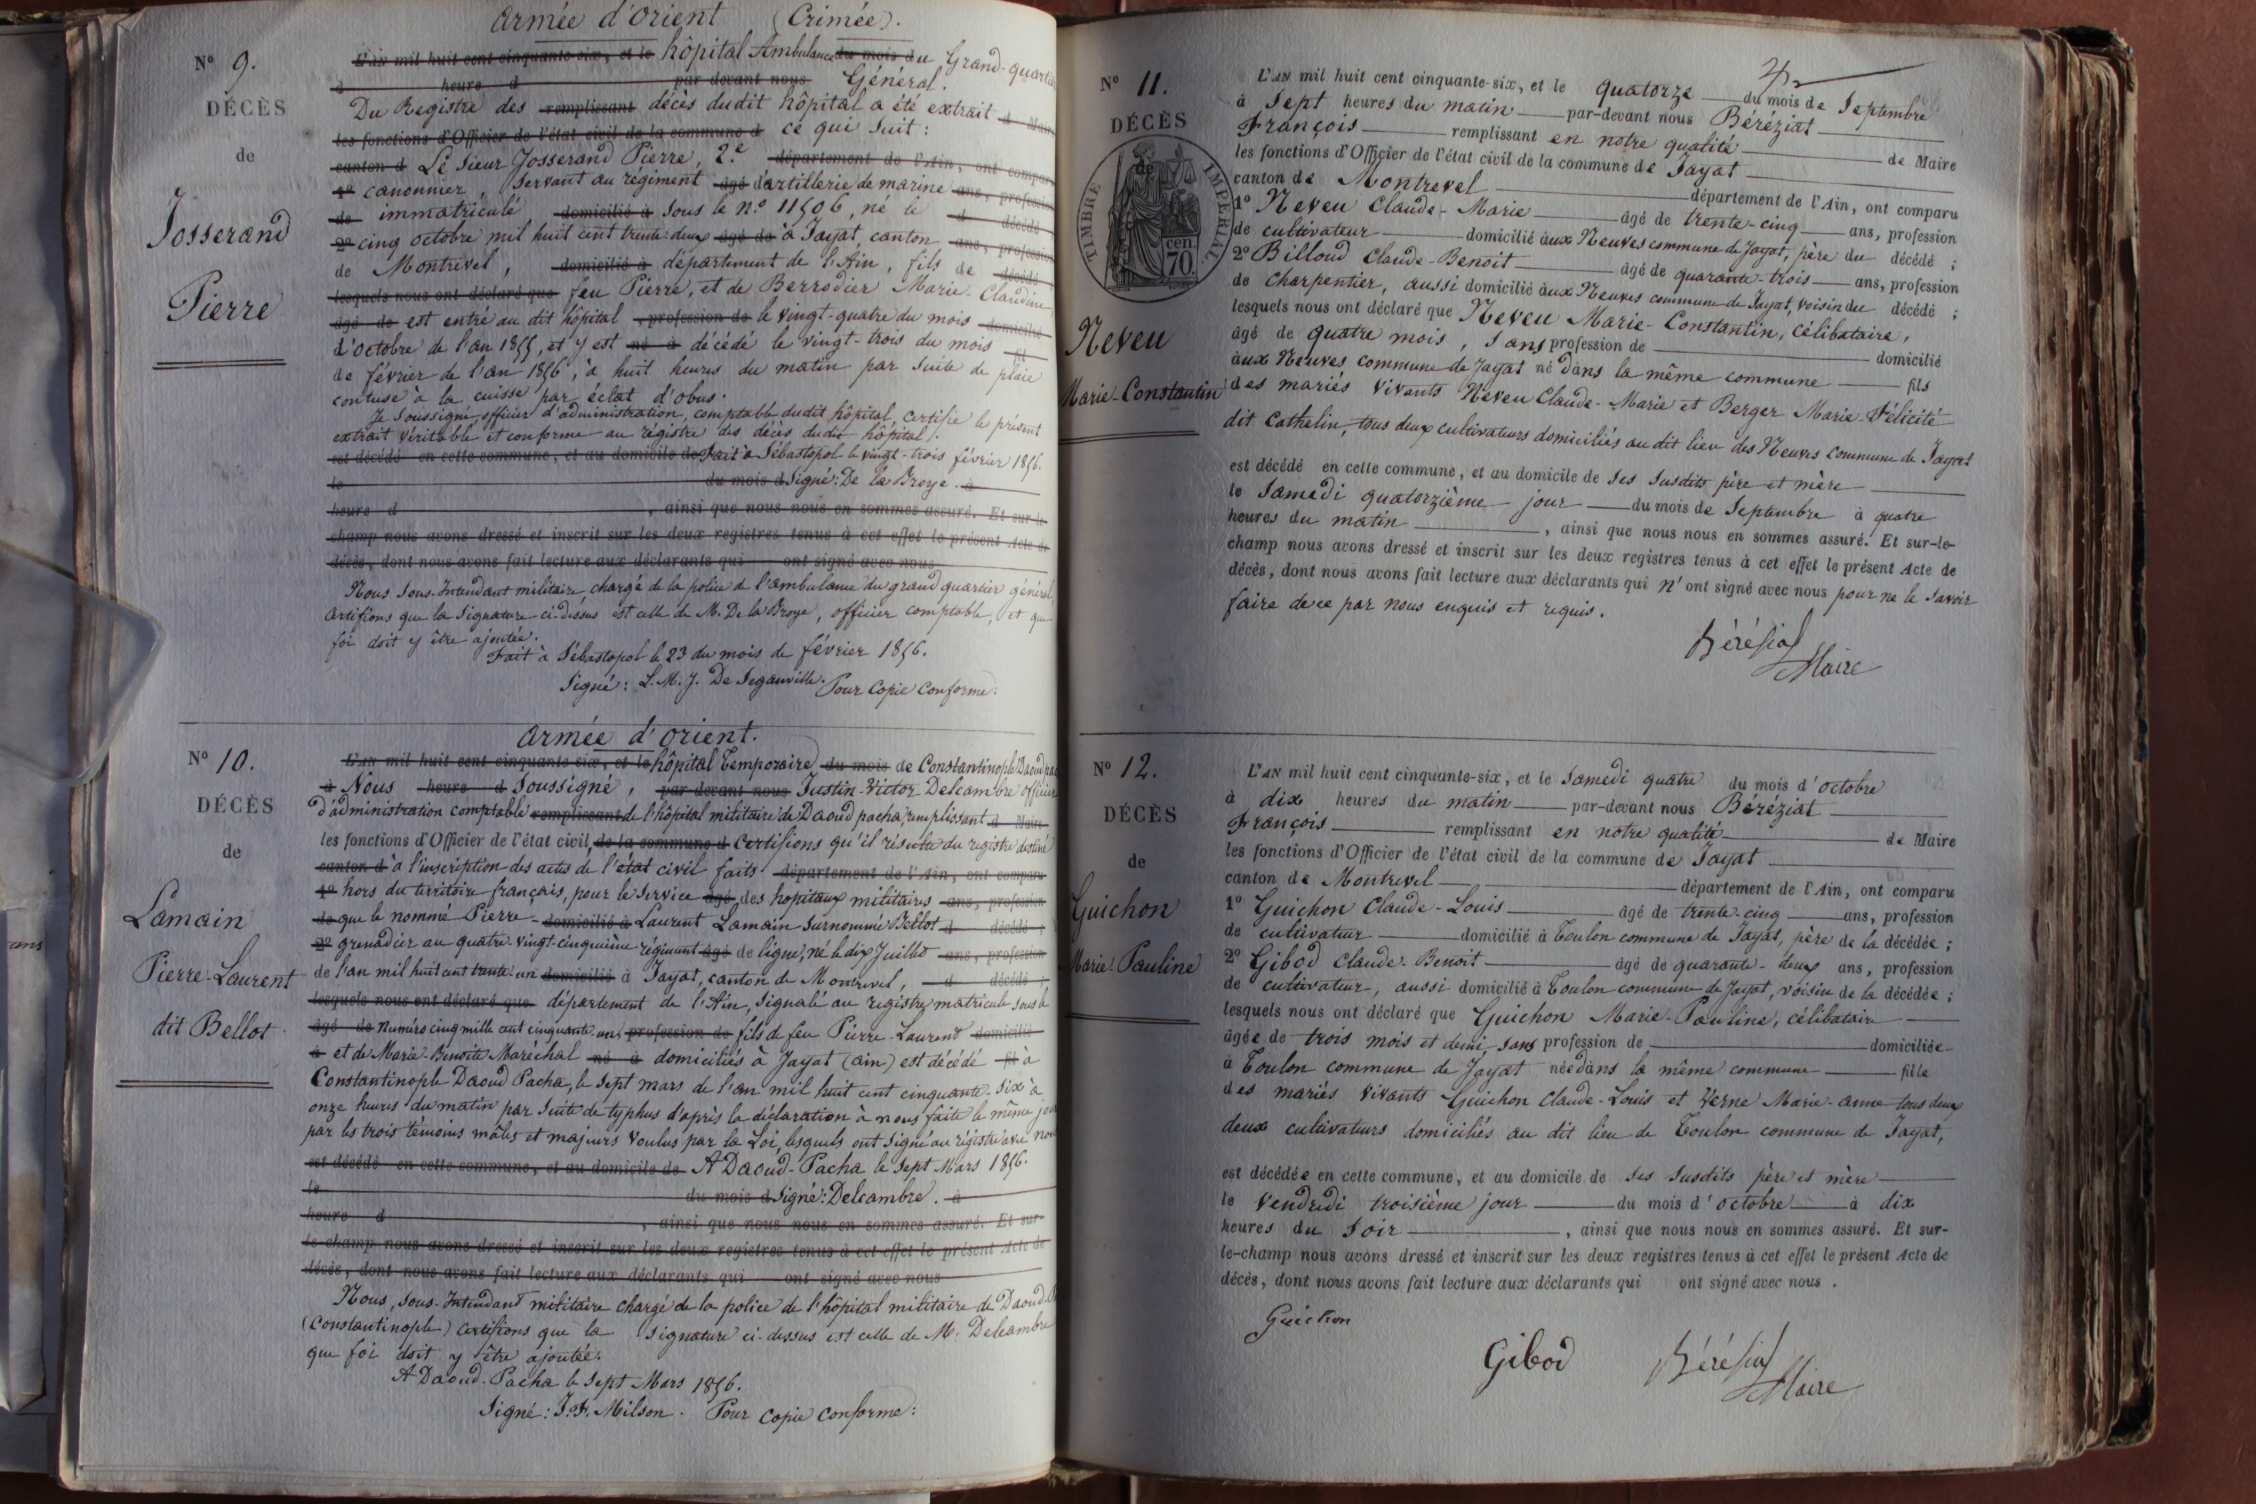 Armée d'Orient (Crimée).
N° 9.
DÉCÈS
de
Josserand
Pierre
L'AN mil huit cent cinquante-six, et le hôpital Ambulance du mois du Grand-quartier
à heure d par devant nous Général.
Du Registre des remplissant décès dudit hôpital a été extrait d Maire
les fonctions d'Officier de l'état civil de la commune d ce qui suit :
canton d Le sieur Josserand Pierre, 2.e département de l'Ain, ont comparu
1° canonnier, servant au régiment âgé d'artillerie de marine ans, profession
de immatriculé domicilié à sous le n.° 11506, né le d décédé
2° cinq octobre mil huit cent trente-deux âgé de à Jayat, canton ans, profession
de Montrevel, domicilié à département de l'Ain, fils de décédé
lesquels nous ont déclaré que feu Pierre, et de Berrodier Marie-Claudine
âgé de est entré au dit hôpital, profession de le vingt-quatre du mois domicilié
d'octobre de l'an 1855, et y est né à décédé le vingt-trois du mois fil
de février de l'an 1856, à huit heures du matin par suite de plaie
contuse à la cuisse par éclat d'obus.
Je soussigné officier d'administration, comptable dudit hôpital, certifie le présent
extrait véritable et conforme au régistre des décès dudit hôpital.
est décédé en cette commune, et au domicile de Fait à Sébastopol le vingt-trois février 1856.
le du mois d Signé: De la Broye. à
heure d , ainsi que nous nous en sommes assuré. Et sur-le-
champ nous avons dressé et inscrit sur les deux registres tenus à cet effet le présent Acte de
décès, dont nous avons fait lecture aux déclarants qui ont signé avec nous
Nous Sous-Intendant militaire, chargé de la police de l'ambulance du grand quartier général,
certifions que la signature ci-dessus est celle de M. De la Broye, officier comptable, et que
foi doit y être ajoutée.
Fait à Sébastopol le 23 du mois de février 1856.
Signé: L. M. J. De Seganville. Pour copie conforme:
Armée d'Orient.
N° 10.
DÉCÈS
de
Lamain
Pierre-Laurent
dit Bellot
L'AN mil huit cent cinquante-six, et le hôpital Temporaire du mois de Constantinople Daoud pacha
à Nous heure d soussigné, par devant nous Justin-Victor Delcambre officier
D'administration comptable remplissant de l'hôpital militaire de Daoud pacha, remplissant d Maire
les fonctions d'Officier de l'état civil, de la commune d certifions qu'il résulte du registre destiné
canton d à l'inscription des actes de l'état civil faits département de l'Ain, ont comparu
1° hors du territoire français, pour le service âgé des hopitaux militaires ans, profession
de que le nommé Pierre- domicilié à Laurent Lamain surnommé Bellot d décédé ;
2° grenadier au quatre-vingt-cinquième régiment âgé de ligne, né le dix Juillet ans, profession
de l'an mil huit cent trente-un domicilié à Jayat, canton de Montrevel, d décédé ;
lesquels nous ont déclaré que département de l'Ain, signalé au registre matricule sous le
âgé de numéro cinq mille cent cinquante un, profession de fils de feu Pierre-Laurent domicilié
à et de Marie-Benoite Maréchal né à domiciliés à Jayat (ain) est décédé fil à
Constantinople Daoud Pacha, le sept mars de l'an mil huit cent cinquante-six à
onze heures du matin par suite de typhus d'après la déclaration à nous faite le même jour
par les trois témoins mâles et majeurs voulus par la Loi, lesquels ont signé au régistre avec nous
est décédé en cette commune, et au domicile de A Daoud-Pacha le sept Mars 1856.
le du mois d Signé: Delcambre. à
heure d , ainsi que nous nous en sommes assuré. Et sur-
le-champ nous avons dressé et inscrit sur les deux registres tenus à cet effet le présent Acte de
décès, dont nous avons fait lecture aux déclarants qui ont signé avec nous
Nous, Sous-Intendant militaire chargé de la police de l'hôpital militaire de Daoud-P
(Constantinople) certifions que la signature ci-dessus est celle de M. Delcambre
que foi doit y être ajoutée.
A Daoud-Pacha le sept Mars 1856.
Signé: J. F. Milson. Pour copie conforme:
N° 11.
DÉCÈS
de
TIMBRE IMPERIAL
cen.
70.
Neveu
Marie-Constantin
L'AN mil huit cent cinquante-six, et le quatorze du mois de Septembre
à Sept heures du matin par-devant nous Béréziat
François remplissant en notre qualité de Maire
les fonctions d'Officier de l'état civil de la commune de Jayat
canton de Montrevel département de l'Ain, ont comparu
1° Neveu Claude-Marie âgé de trente-cinq ans, profession
de cultivateur domicilié aux Neuves commune de Jayat, père du décédé ;
2° Billoud Claude-Benoit âgé de quarante-trois ans, profession
de charpentier, aussi domicilié aux Neuves commune de Jayat, voisin du décédé ;
lesquels nous ont déclaré que Neveu Marie-Constantin, célibataire,
âgé de quatre mois, sans profession de domicilié
aux Neuves commune de Jayat né dans la même commune fils
des mariés vivants Neveu Claude-Marie et Berger Marie-Félicité
dit Cathelin, tous deux cultivateurs domiciliés au dit lieu des Neuves commune de Jayat
est décédé en cette commune, et au domicile de ses susdits père et mère
le Samedi quatorzième jour du mois de Septembre à quatre
heures du matin , ainsi que nous nous en sommes assuré. Et sur-le-
champ nous avons dressé et inscrit sur les deux registres tenus à cet effet le présent Acte de
décès, dont nous avons fait lecture aux déclarants qui n'ont signé avec nous pour ne le savoir
faire de ce par nous enquis et requis.
Bérésiat
Maire
N° 12.
DÉCÈS
de
Guichon
Marie-Pauline
L'AN mil huit cent cinquante-six, et le Samedi quatre du mois d'octobre
à dix heures du matin par-devant nous Béréziat
François remplissant en notre qualité de Maire
les fonctions d'Officier de l'état civil de la commune de Jayat
canton de Montrevel département de l'Ain, ont comparu
1° Guichon Claude-Louis âgé de trente-cinq ans, profession
de cultivateur domicilié à Toulon commune de Jayat, père de la décédée ;
2° Gibod Claude-Benoit âgé de quarante-deux ans, profession
de cultivateur, aussi domicilié à Toulon commune de Jayat, voisin de la décédée ;
lesquels nous ont déclaré que Guichon Marie-Pauline, célibataire
âgée de trois mois et demi, sans profession de domiciliée
à Toulon commune de Jayat née dans la même commune fille
des mariés vivants Guichon Claude-Louis et Verne Marie-anne tous deux
deux cultivateurs domiciliés au dit lieu de Toulon commune de Jayat,
est décédée en cette commune, et au domicile de ses susdits père et mère
le Vendredi troisième jour du mois d'octobre à dix
heures du soir , ainsi que nous nous en sommes assuré. Et sur-
le-champ nous avons dressé et inscrit sur les deux registres tenus à cet effet le présent Acte de
décès, dont nous avons fait lecture aux déclarants qui ont signé avec nous .
Guichon
Gibod Bérésiat
Maire